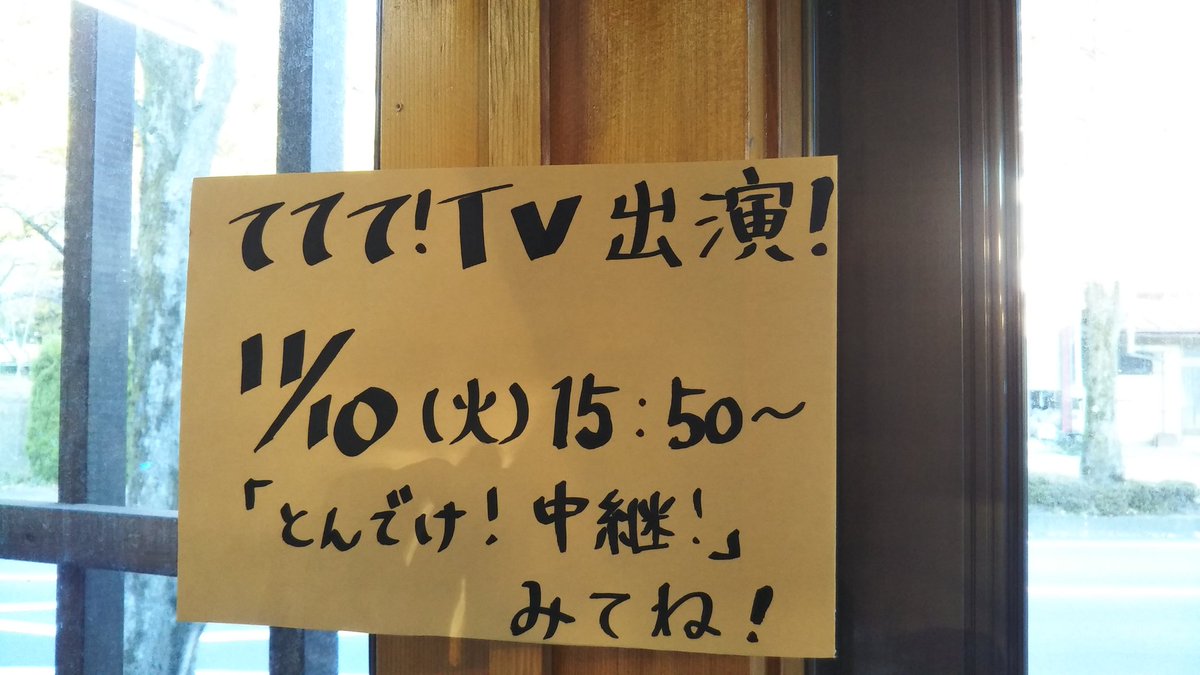 ててて!TV 出演!
11/10(火)15:50~
「とんでけ!中継!」
みてね!